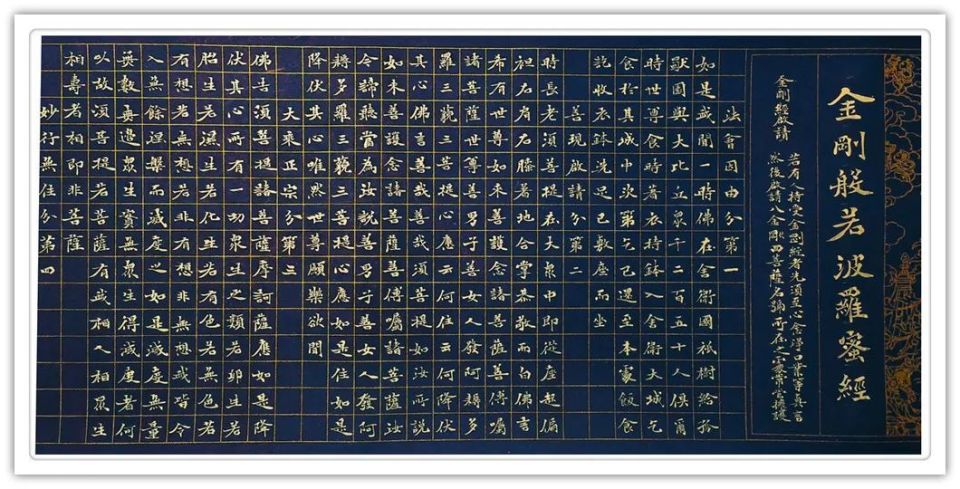 金剛般若波羅蜜經
金剛經啟請
若有人持金剛經者先須至心念淨口業等真言
然後啟請八金剛四菩薩名號所在之處常當擁護
法會因由分第一
如是我聞一時佛在舍衛國祇樹給孤
獨園與大比丘眾千二百五十人俱爾
時世尊食時著衣持鉢入舍衛大城乞
食於其城中次第乞已還至本處飯食
訖收衣鉢洗足已敷座而坐
善現啟請分第二
時長老須菩提在大眾中即從座起偏
袒右肩右膝著地合掌恭敬而白佛言
希有世尊如來善護念諸菩薩善傅囑
諸菩薩世尊善男子善女人發阿耨多
羅三藐三菩提心應云何住云何降伏
其心佛言善哉善哉須菩提如汝所說
如來善護念諸菩薩善傅囑諸菩薩汝
今諦聽當為汝說善男子善女人發阿
耨多羅三藐三菩提心應如是住如是
降伏其心唯然世尊願樂欲聞
大乘正宗分第三
佛告須菩提諸菩薩摩訶薩應如是降
伏其心所有一切眾生之類若卵生若
胎生若濕生若化生若有色若無色若
有想若無想若非有想非無想我皆令
入無餘涅槃而滅度之如是滅度無量
無數無邊眾生實無眾生得滅度者何
以故須菩提若菩薩有我相人相眾生
相壽者相即非菩薩
妙行無住分第四